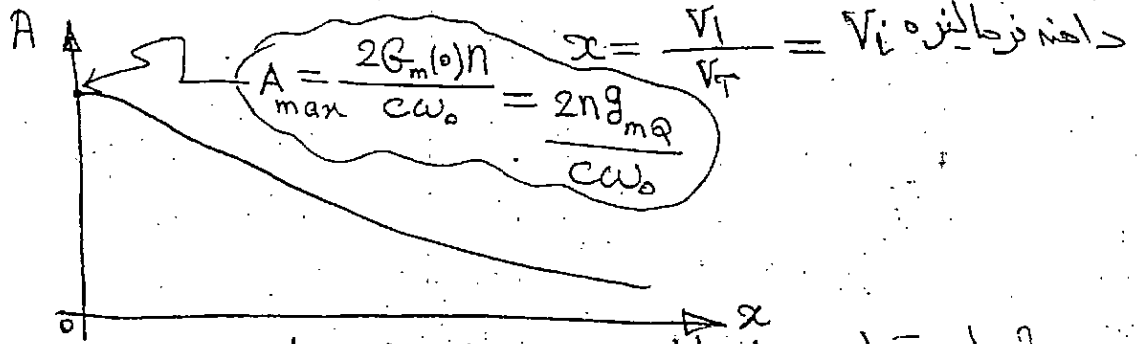 A
A_max = 2G_m(0)n / cω₀ = 2ng_mQ / cω₀
x = V₁ / V_T = دامنه نرمالیزه Vᵢ
0
x